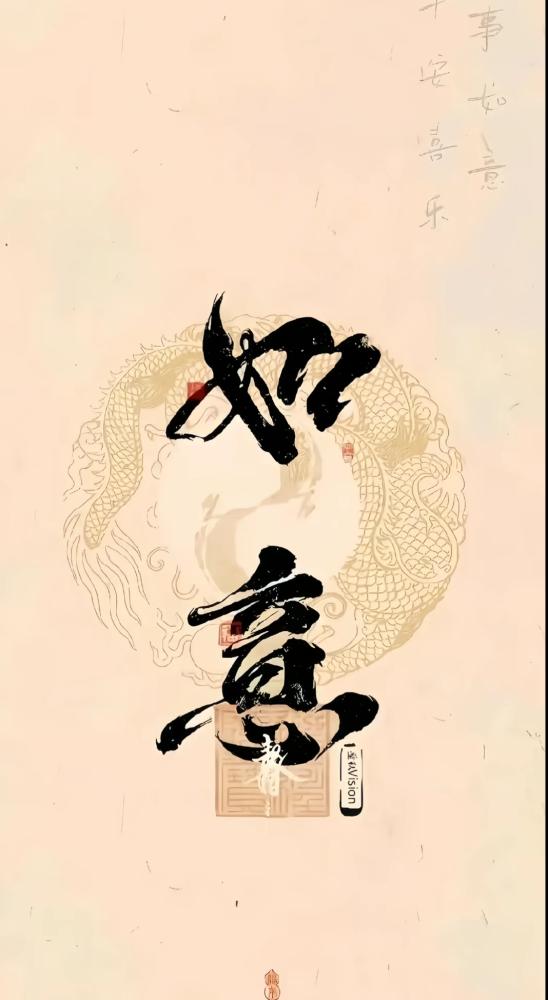 事如意
安喜乐
如
意
Vision